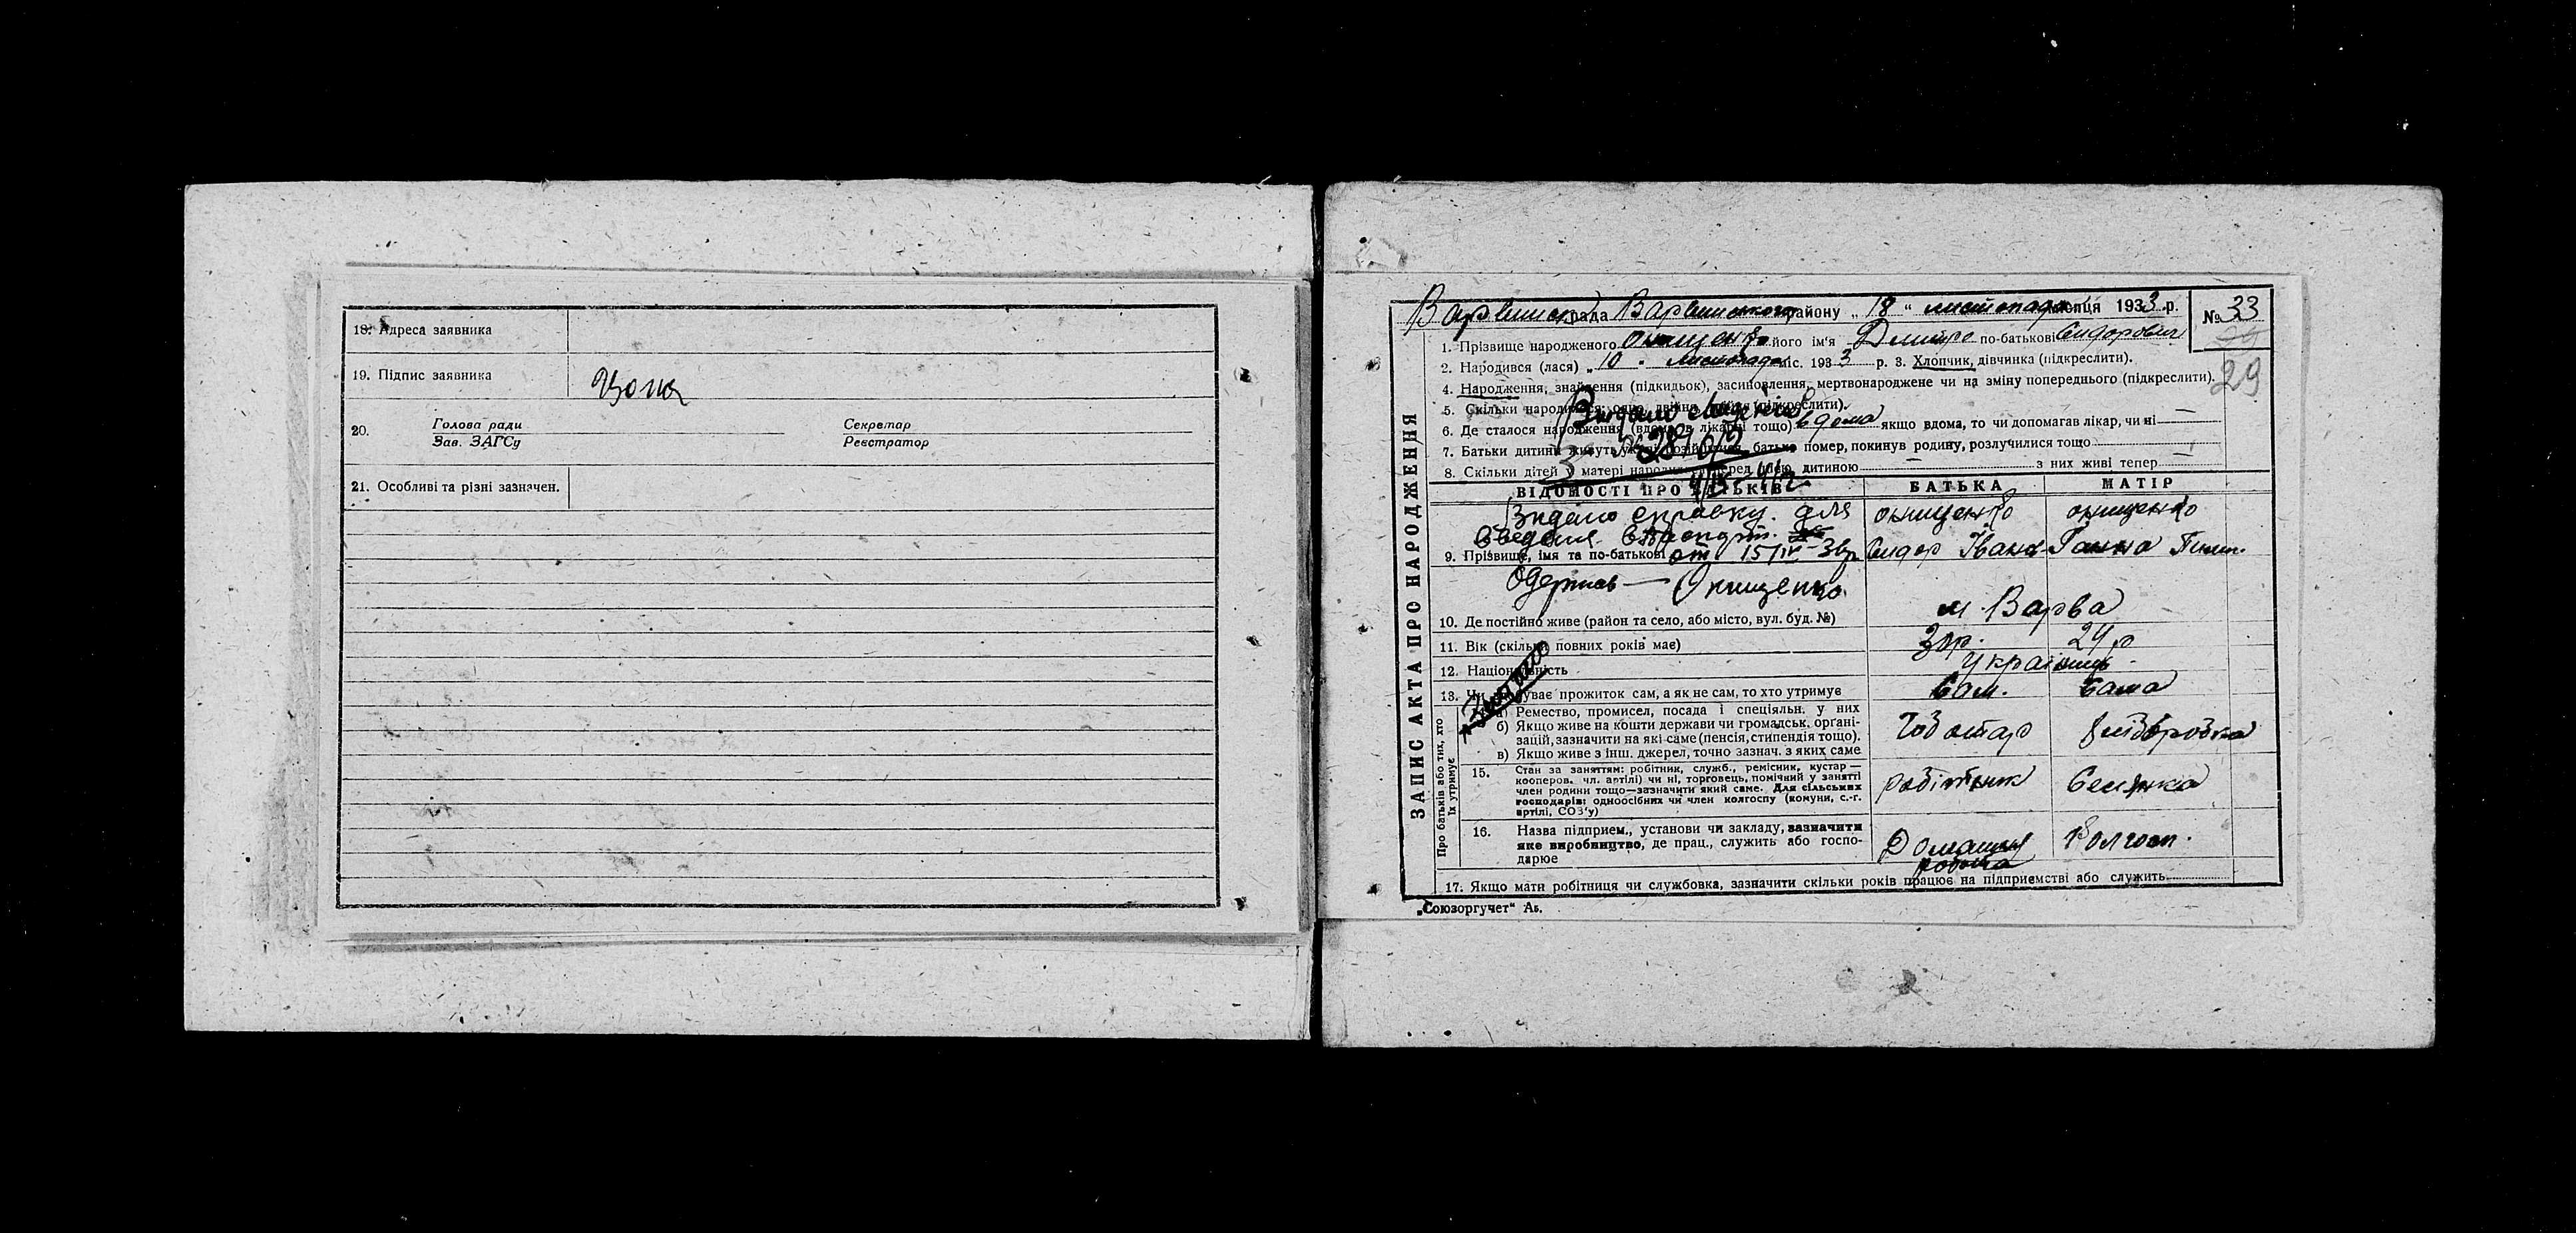 18. Адреса заявника
19. Підпис заявника
20. Голова ради Секретар
Зав. ЗАГСу Реєстратор
21. Особливі та різні зазначен.
ЗАПИС АКТА ПРО НАРОДЖЕННЯ
рада Варвинского району „ 18 “ листопада місяця 1933 р. № 33
1. Прізвище народженого Онищенко його ім'я Дмитро по-батькові Сидорович
2. Народився (лася) „ 10 " листопада міс. 1933 р. 3. Хлопчик, дівчинка (підкреслити).
29
4. Народження, знайдення (підкидьок), засиновлення, мертвонароджене чи на зміну попереднього (підкреслити).
5. Скільки народилося: одно, двійня, (підкреслити).
Видано
6. Де сталося народження (вдома, в лікарні тощо) вдома якщо вдома, то чи допомагав лікар, чи ні —
7. Батьки дитини живуть батько помер, покинув родину, розлучилися тощо
8. Скільки дітей у матері перед цією дитиною — з них живі тепер —
ВІДОМОСТІ ПРО БАТЬКІВ БАТЬКА МАТІР
Видано справку для Онищенко Онищенко
9. Прізвище, імя та по-батькові от 15/IV Сидор Іванов Ганна
Одержав — Онищенко
10. Де постійно живе (район та село, або місто, вул. буд. №) м. Варва
11. Вік (скільки повних років має) 24 р
12. Національність
13. Чи прожиток сам, а як не сам, то хто утримує Сам. Сама
Про батьків або тих, хто їх утримує
а) Ремество, промисел, посада і спеціяльн. у них
б) Якщо живе на кошти держави чи громадськ. орґані-
зацій, зазначити на які саме (пенсія, стипендія тощо). Чоботар
в) Якщо живе з інш. джерел, точно зазнач. з яких саме
15. Стан за заняттям: робітник, служб., ремісник, кустар —
кооперов. чл. артілі) чи ні, торговець, помічний у занятті
член родини тощо—зазначити який саме. Для сільських робітник Селянка
господарів: одноосібник чи член колгоспу (комуни, с.-г.
артілі, СОЗ'у)
16. Назва підприєм., установи чи закладу, зазначити
яке виробництво, де прац., служить або госпо- Домашня Колгосп.
дарює робота
17. Якщо мати робітниця чи службовка, зазначити скільки років працює на підприємстві або служить
„Союзоргучет“